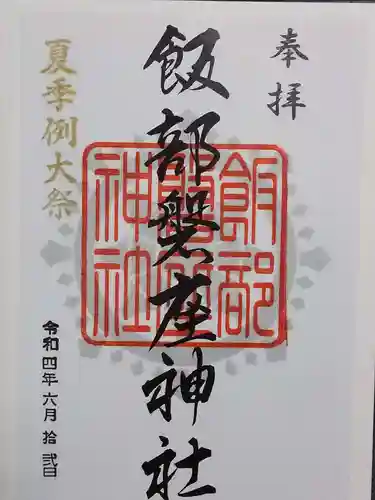 奉拝
飯部磐座神社
夏季例大祭
令和四年六月拾弐日
飯部
磐座
神社